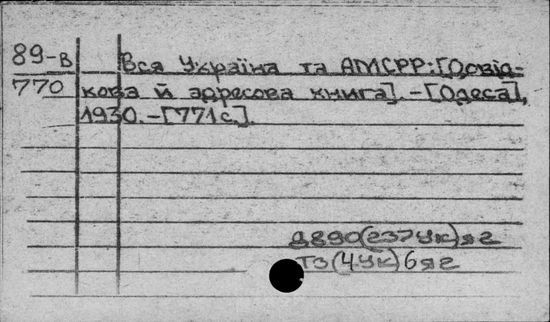 89-в
770
Вся Україна та АМСРР:[Довід-
кова й адресова книга].-[Одеса],
1930.-[771с.].
д890(237Ук)я2
т3(4Ук)6я2